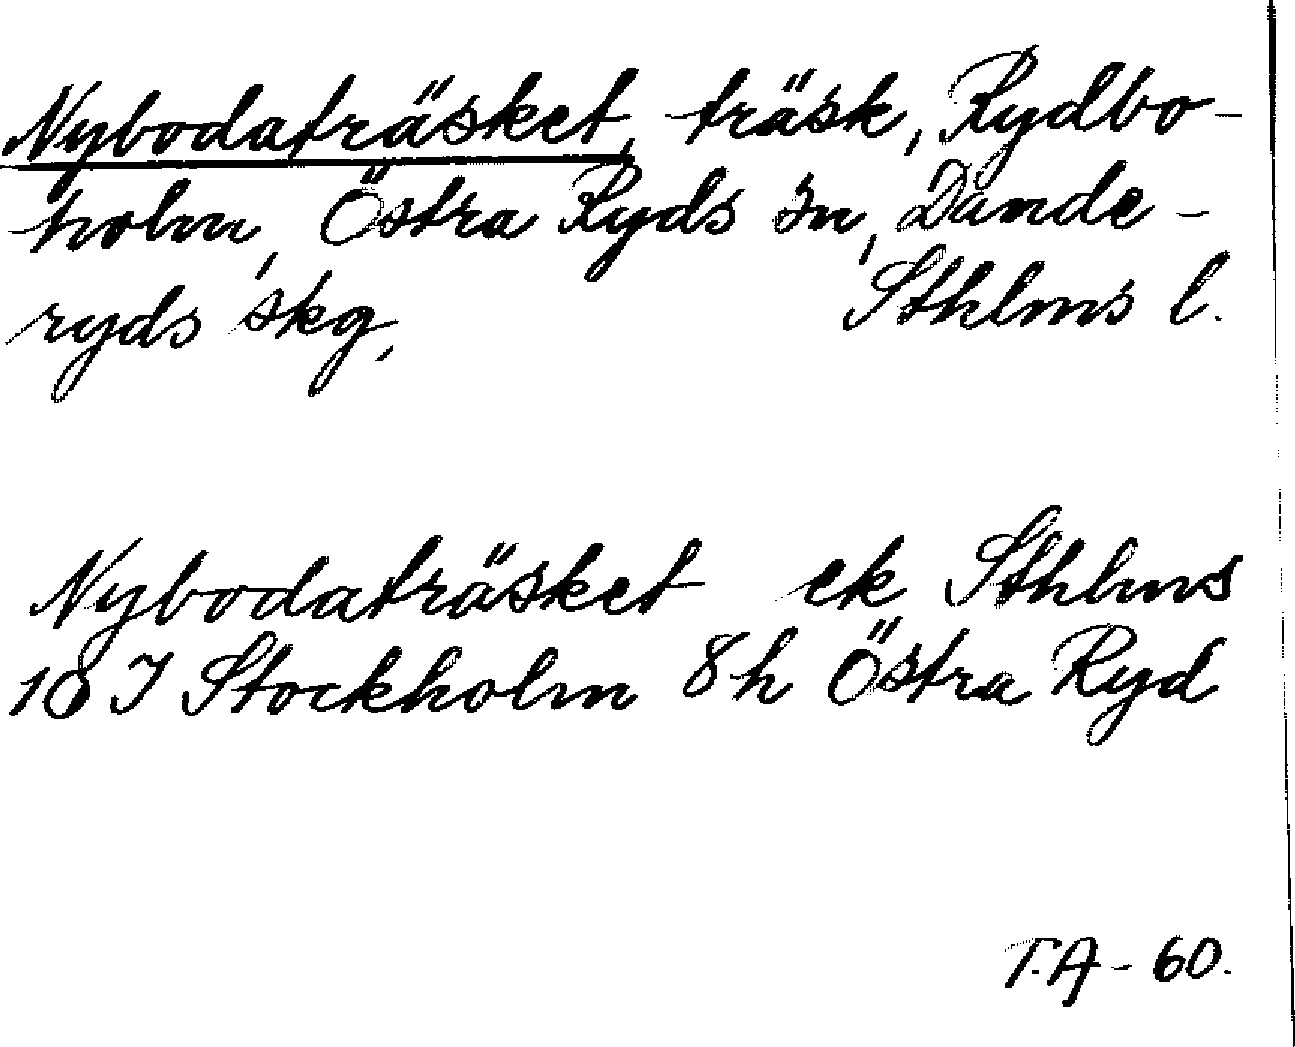 Nybodaträsket, träsk, Rydbo-
holm, Östra Ryds sn, Dande-
ryds skg, Sthlms l.
Nybodaträsket ek Sthlms
10 I Stockholm 8h Östra Ryd
T.A - 60.